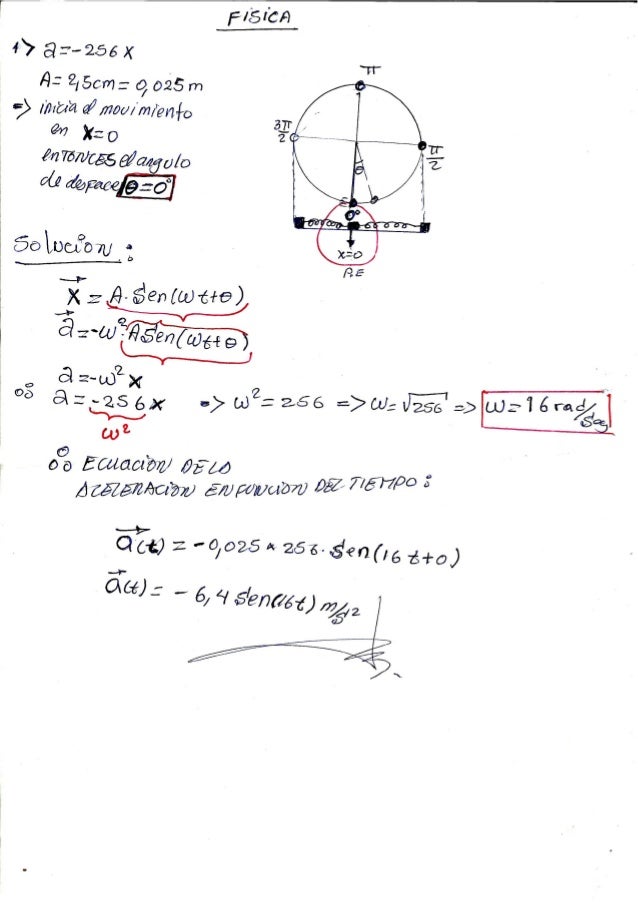 FISICA
1> a=-256x
A= 2,5cm= 0,025 m
=> inicia el movimiento
en x=0
enTONCES el angulo
de desface θ=0°
π
3π/2
π/2
θ
0°
x=0
P.E
Solucion :
x = A. Sen(ωt+θ)
a=-ω².ASen(ωt+θ)
a=-ω²x
a=-256x => ω²= 256 => ω= √256 => ω= 16 rad/Seg
ω²
ECUACION DE LA
ACELERACION EN FUNCION DEL TIEMPO :
a(t) = -0,025 * 256. Sen(16 t+0)
a(t) = - 6,4 Sen(16t) m/s^2